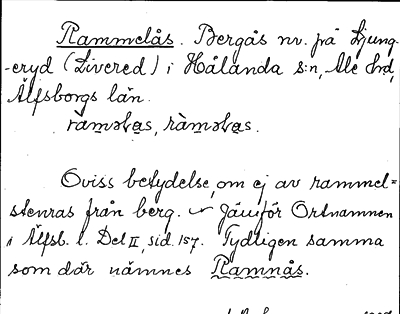 Rammelås. Bergås nv. på Ljung-
-eryd (Livered) i Hålanda s:n, Ale hd,
Älfsborgs län.
ràməlas, ràməlas.
Oviss betydelse, om ej av rammel=
stenras från berg. Jämför Ortnamnen
i Älfsb. l. Del II, sid. 157. Tydligen samma
som där nämnes Ramnås.